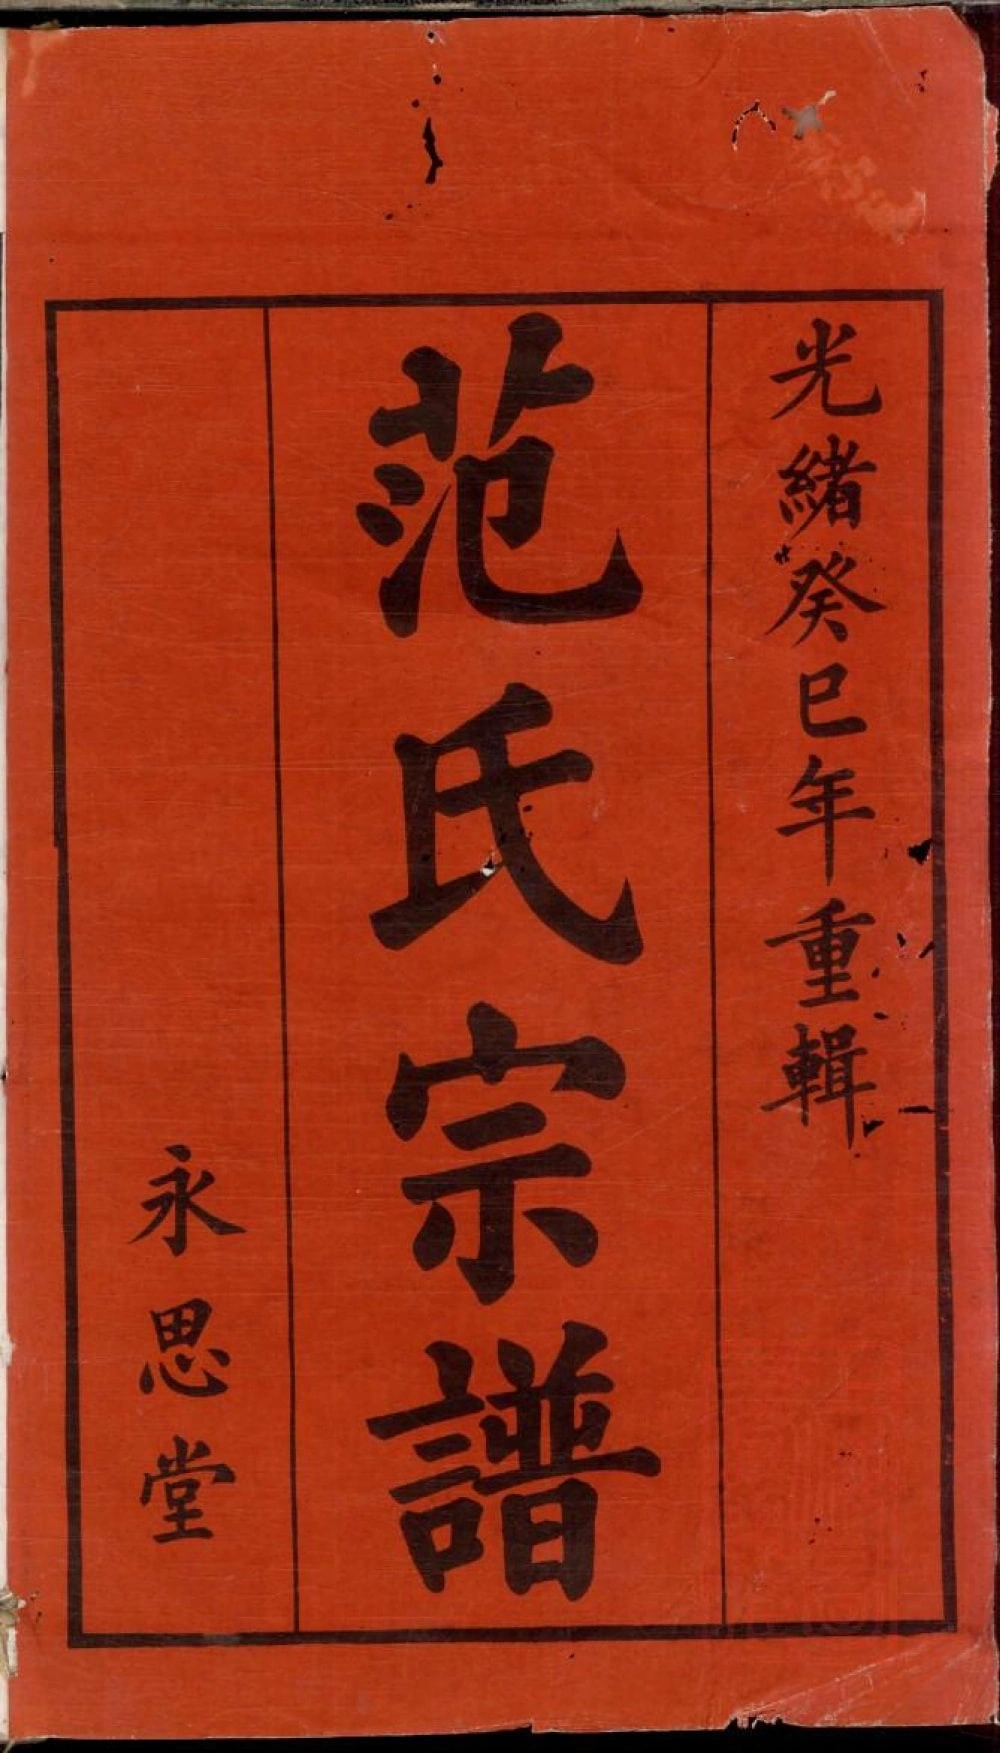 光緒癸巳年重輯
范氏宗譜
永思堂